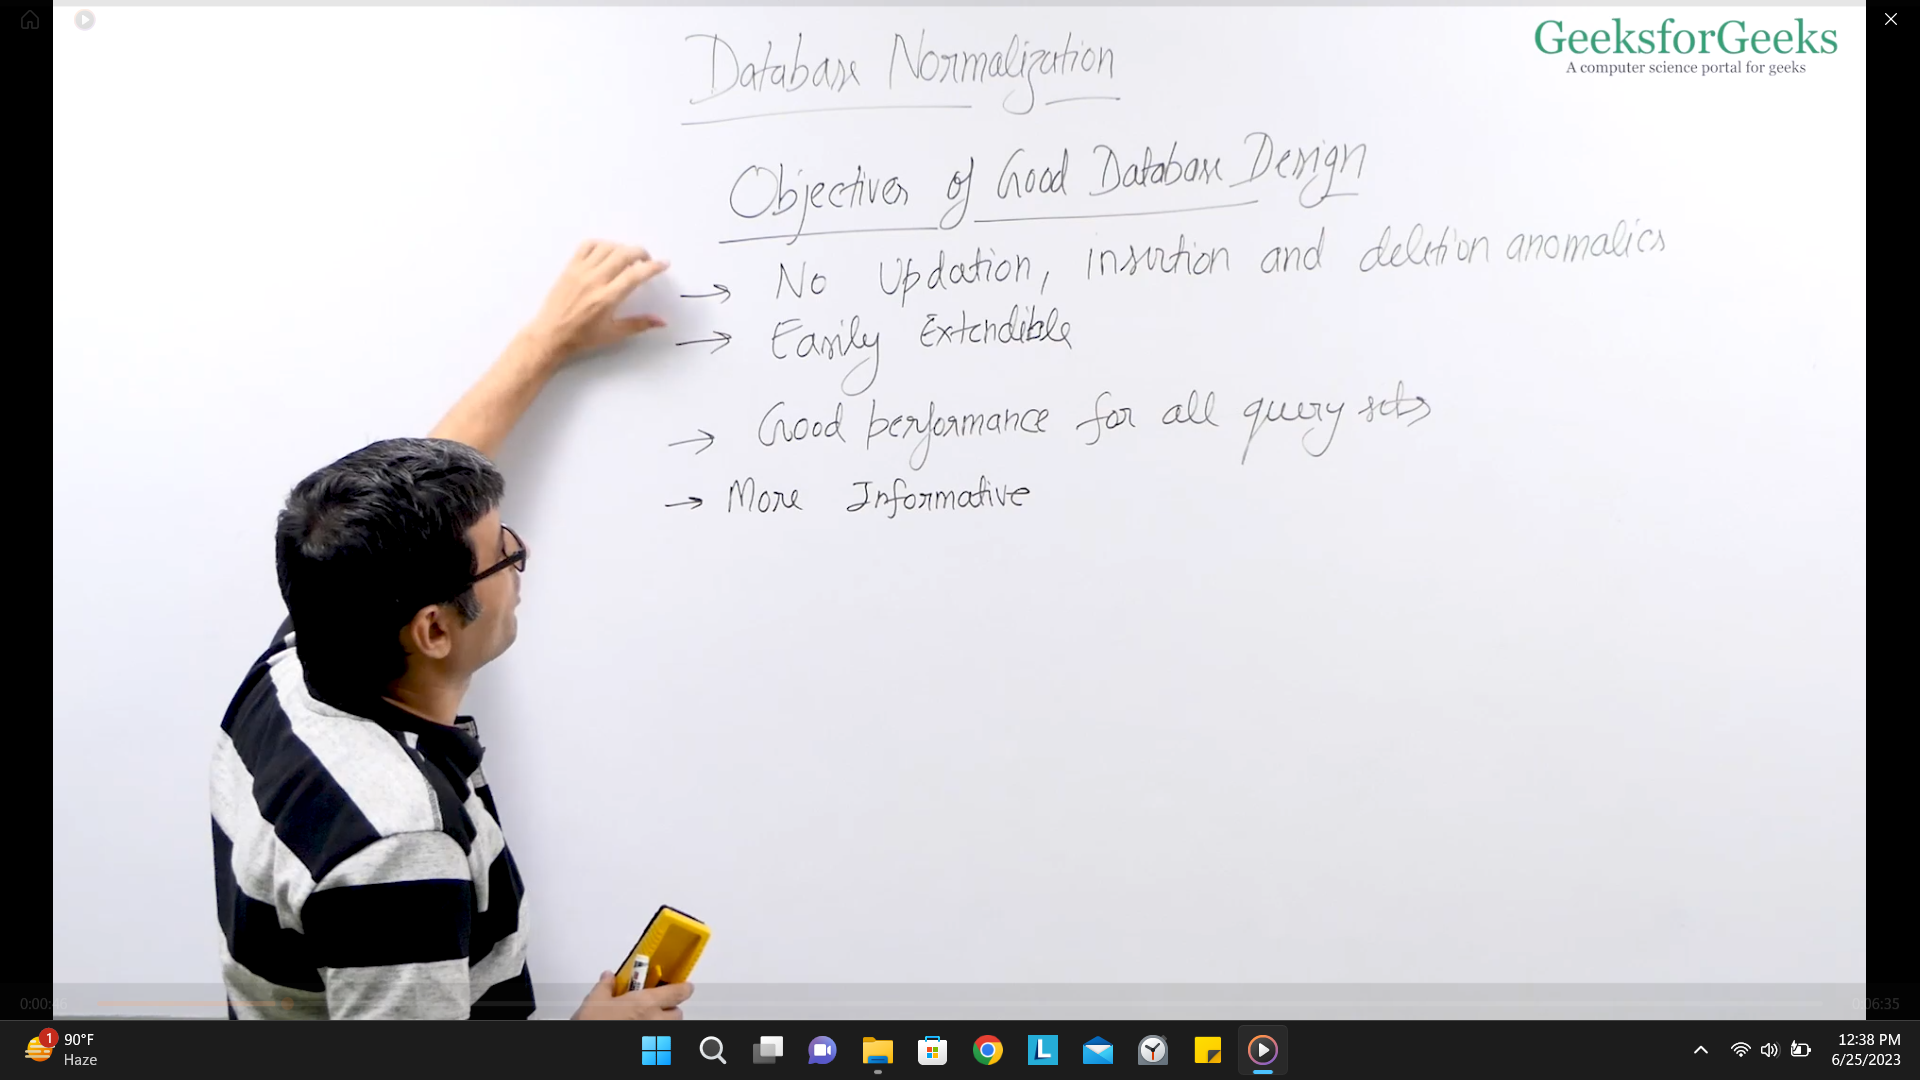 GeeksforGeeks
A computer science portal for geeks
Database Normalization
Objectives of Good Database Design
→ No Updation, insertion and deletion anomalies
→ Easily Extendible
→ Good performance for all query sets
→ More Informative
0:00:46
0:06:35
1
90°F
Haze
L
12:38 PM
6/25/2023